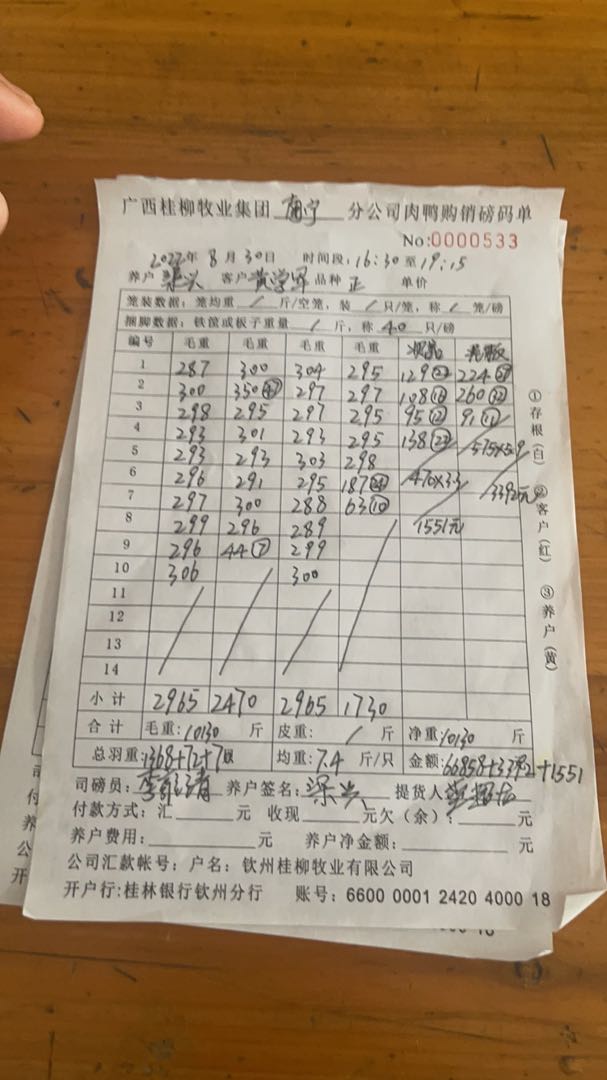 广西桂柳牧业集团 南宁 分公司肉鸭购销磅码单
No:0000533
2022年 8 月 30日 时间段:16:30至19:15
养户 梁兴 客户 黄学军 品种 正 单价
笼装数据:笼均重 / 斤/空笼,装 / 只/笼,称 / 笼/磅
捆脚数据:铁筐或板子重量 / 斤,称 40 只/磅
编号 毛重 毛重 毛重 毛重
1 287 300 304 295 129 224
2 300 350 297 297 108 260
3 298 295 297 295 95 91
4 293 301 293 295 138 575×5.9
5 293 293 303 298
6 296 291 295 187 470×3.3 3392元
7 297 300 288 63⑩
8 299 296 289 1551元
9 296 44⑦ 299
10 306 300
11
12
13
14
小计 2965 2470 2965 1730
合计 毛重:10130 斤 皮重: / 斤 净重:10130 斤
总羽重:1368+72+7 均重:7.4 斤/只 金额:66858+3392+1551
司磅员: 养户签名:梁兴 提货人
付款方式:汇 元 收现 元欠(余): 元
养户费用: 元 养户净金额: 元
公司汇款帐号:户名:钦州桂柳牧业有限公司
开户行:桂林银行钦州分行 账号:6600 0001 2420 4000 18
①存根(白) ②客户(红) ③养户(黄)